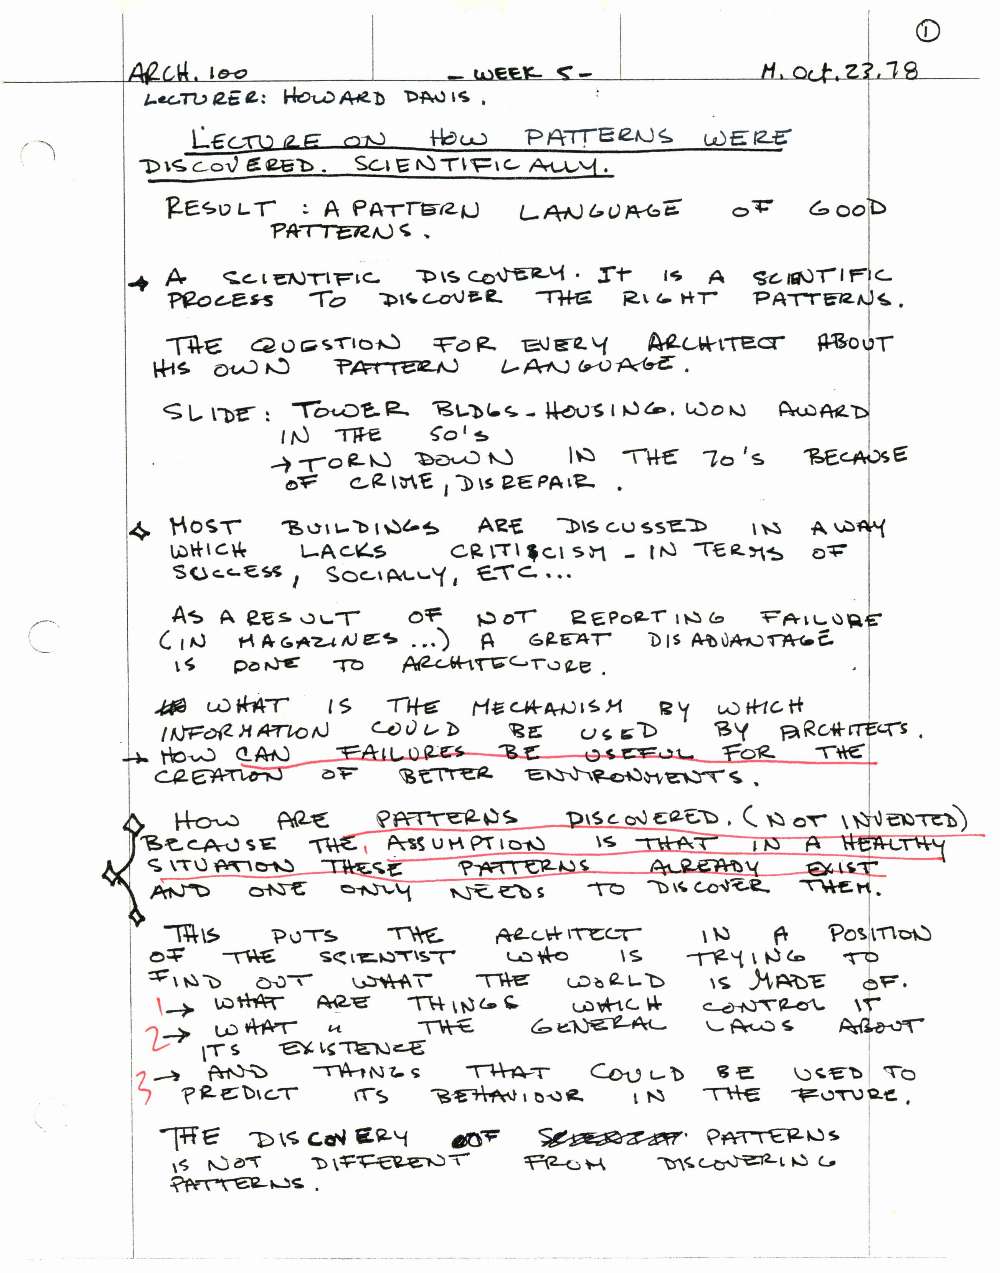 1
ARCH. 100 - WEEK 5 - M. Oct. 23. 78
LECTURER: HOWARD DAVIS.
LECTURE ON HOW PATTERNS WERE
DISCOVERED. SCIENTIFICALLY.
RESULT : A PATTERN LANGUAGE OF GOOD
PATTERNS.
A SCIENTIFIC DISCOVERY. It IS A SCENTIFIC
PROCESS TO DISCOVER THE RIGHT PATTERNS.
THE QUESTION FOR EVERY ARCHITECT ABOUT
HIS OWN PATTERN LANGUAGE.
SLIDE: TOWER BLDGS - HOUSING. WON AWARD
IN THE 50'S
→ TORN DOWN IN THE 70'S BECAUSE
OF CRIME, DISREPAIR.
MOST BUILDINGS ARE DISCUSSED IN A WAY
WHICH LACKS CRITICISM - IN TERMS OF
SUCCESS, SOCIALLY, ETC...
AS A RESULT OF NOT REPORTING FAILURE
(IN MAGAZINES ...) A GREAT DISADVANTAGE
IS DONE TO ARCHITECTURE.
WHAT IS THE MECHANISM BY WHICH
INFORMATION COULD BE USED BY ARCHITECTS.
→ HOW CAN FAILURES BE USEFUL FOR THE
CREATION OF BETTER ENVIRONMENTS.
HOW ARE PATTERNS DISCOVERED. (NOT INVENTED)
BECAUSE THE ASSUMPTION IS THAT IN A HEALTHY
SITUATION THESE PATTERNS ALREADY EXIST
AND ONE ONLY NEEDS TO DISCOVER THEM.
THIS PUTS THE ARCHITECT IN A POSITION
OF THE SCIENTIST WHO IS TRYING TO
FIND OUT WHAT THE WORLD IS MADE OF.
1 → WHAT ARE THINGS WHICH CONTROL IT
2 → WHAT " THE GENERAL LAWS ABOUT
ITS EXISTENCE
3 → AND THINGS THAT COULD BE USED TO
PREDICT ITS BEHAVIOUR IN THE FUTURE.
THE DISCOVERY OF PATTERNS
IS NOT DIFFERENT FROM DISCOVERING
PATTERNS.